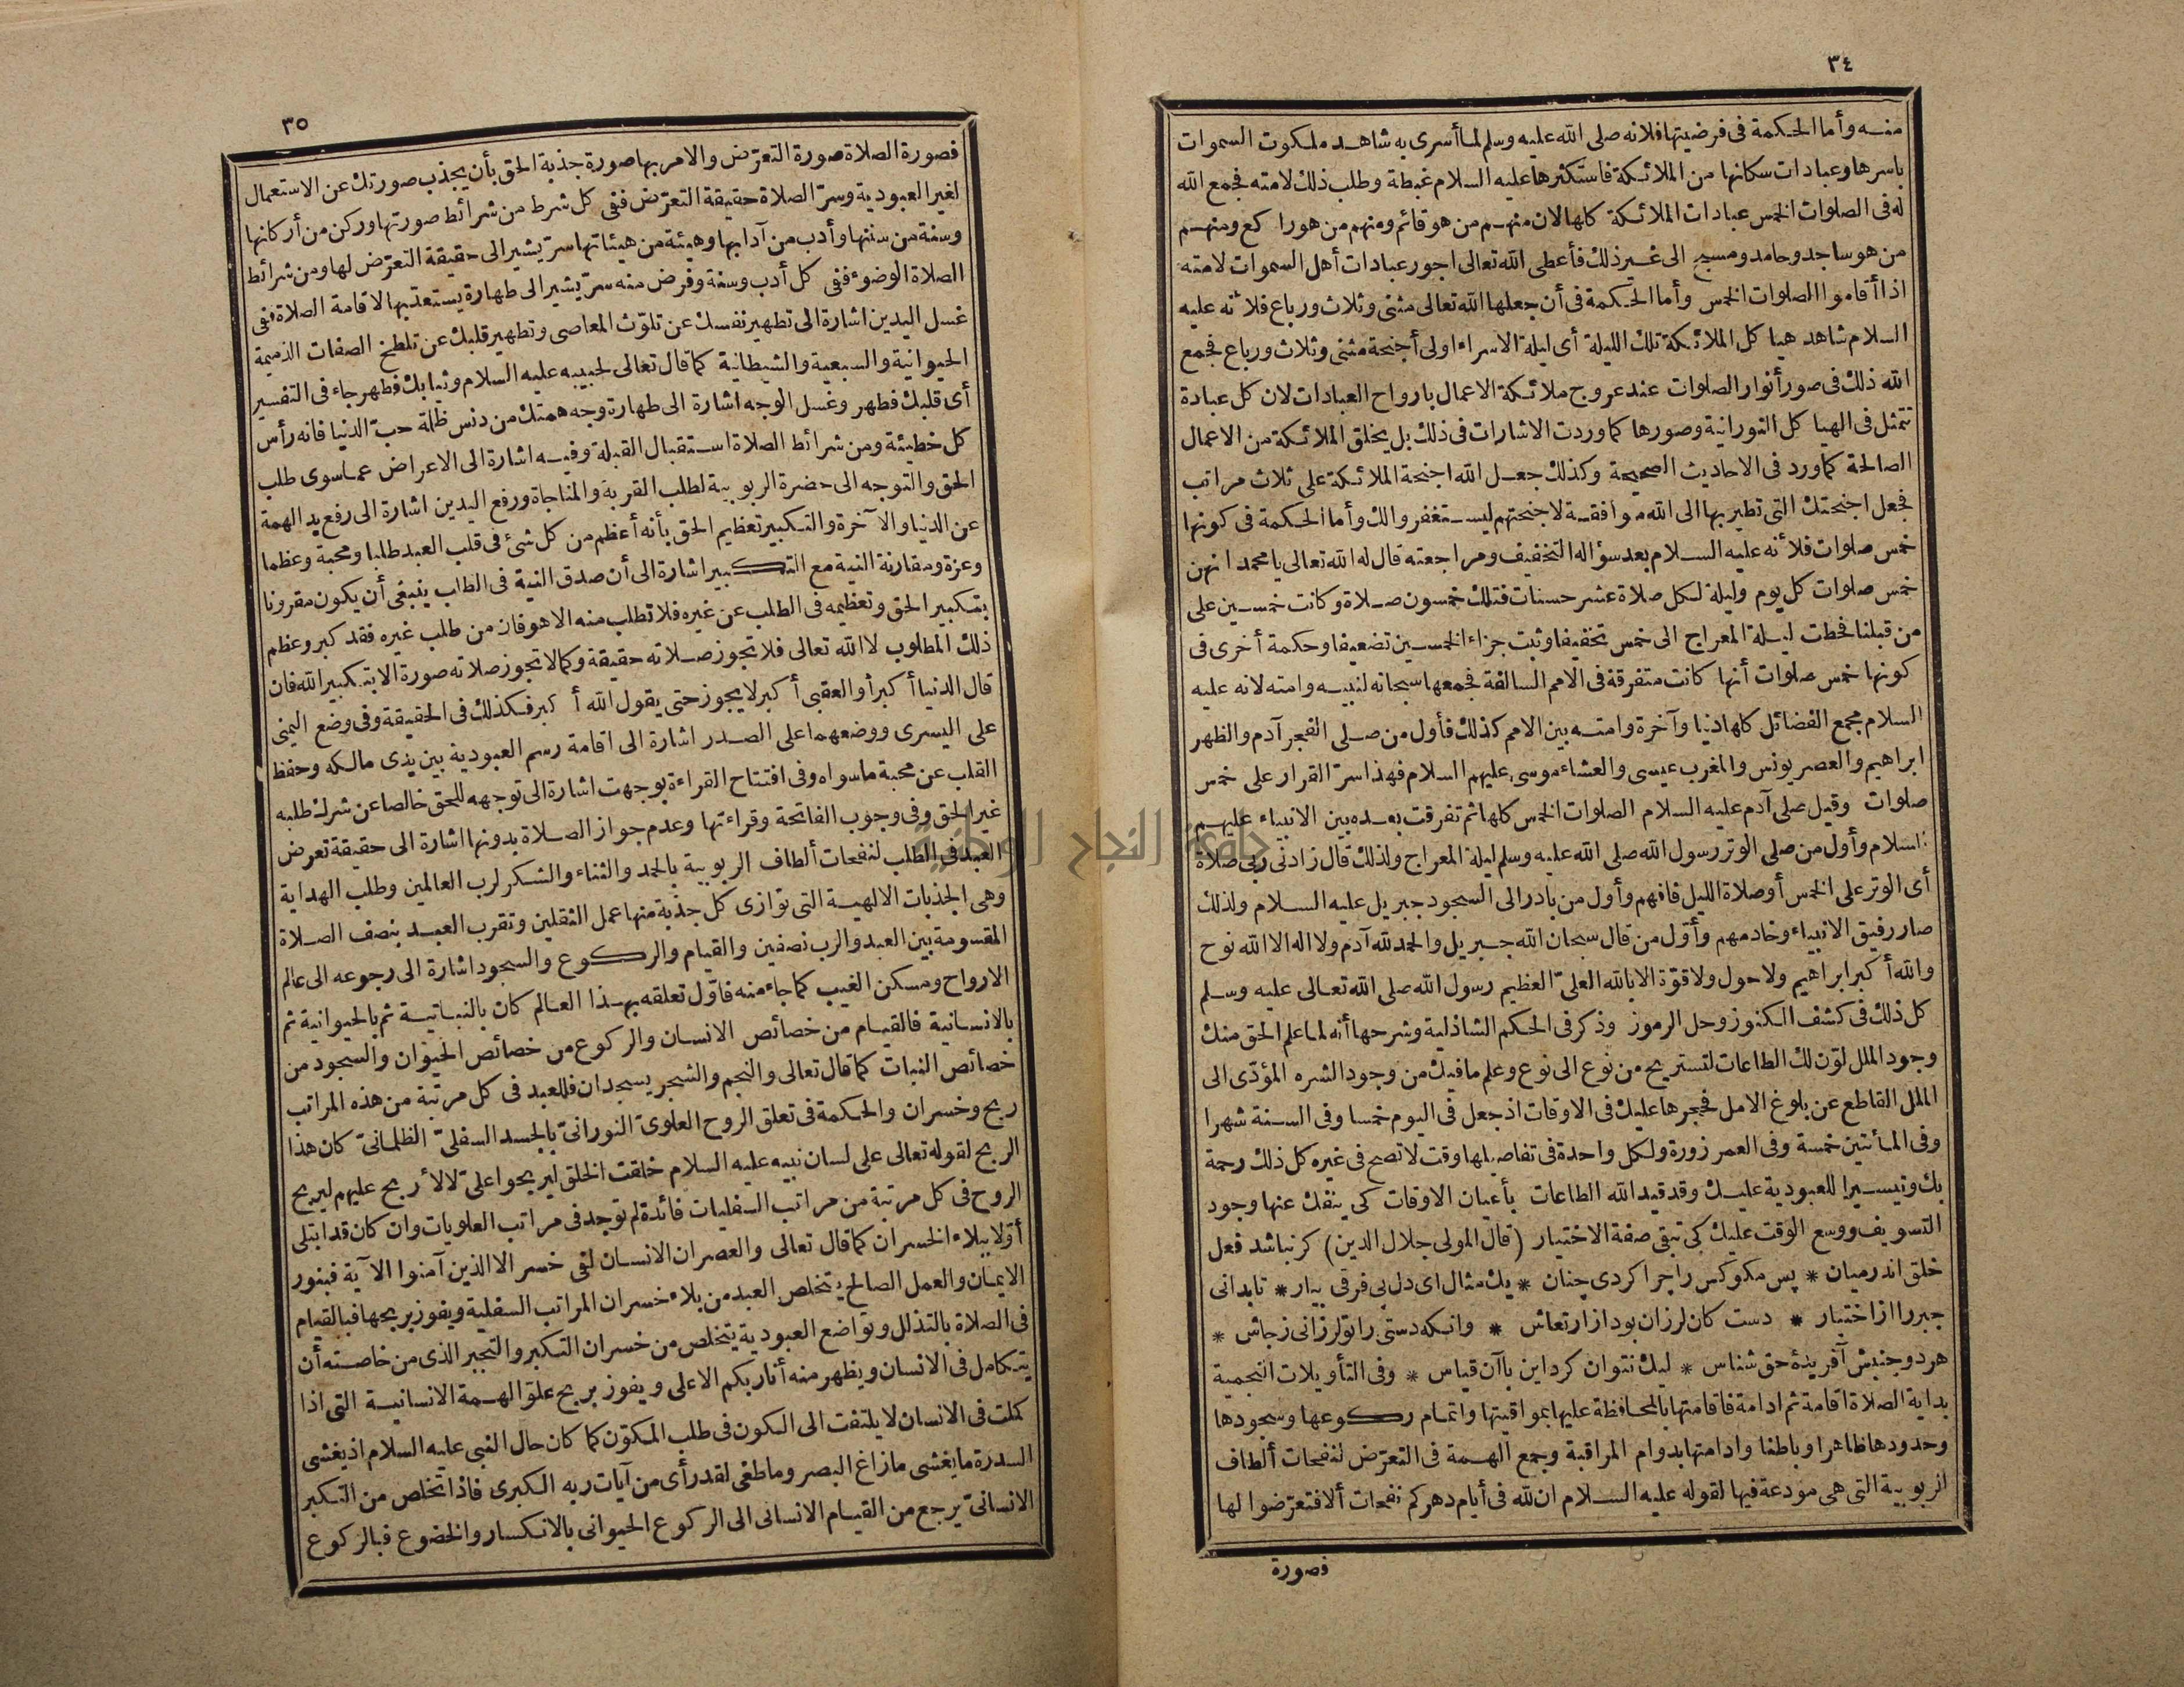 ٣٤
منه وأما الحكمة فى فرضيتها فلانه صلى الله عليه وسلم لما أسرى به شاهد ملكوت السموات
باسرها وعبادات سكانها من الملائكة فاستكثرها عليه السلام غبطة وطلب ذلك لامته فجمع الله
له فى الصلوات الخمس عبادات الملائكة كلها لان منهم من هو قائم ومنهم من هو راكع ومنهم
من هو ساجد وحامد ومسبح الى غير ذلك فأعطى الله تعالى اجور عبادات أهل السموات لامته
اذا أقاموا الصلوات الخمس وأما الحكمة فى أن جعلها الله تعالى مثنى وثلاث ورباع فلانه عليه
السلام شاهد هياكل الملائكة تلك الليلة أى ليلة الاسراء اولى أجنحة مثنى وثلاث ورباع فجمع
الله ذلك فى صور أنوار الصلوات عند عروج ملائكة الاعمال بارواح العبادات لان كل عبادة
تتمثل فى الهياكل النورانية وصورها كما وردت الاشارات فى ذلك بل يخلق الملائكة من الاعمال
الصالحة كما ورد فى الاحاديث الصحيحة وكذلك جعل الله اجنحة الملائكة على ثلاث مراتب
فجعل اجنحتك التى تطير بها الى الله موافقة لاجنحتهم ليستغفروا لك وأما الحكمة فى كونها
خمس صلوات فلانه عليه السلام بعد سؤاله التخفيف ومراجعته قال له الله تعالى يا محمد انهن
خمس صلوات كل يوم وليلة لكل صلاة عشر حسنات فتلك خمسون صلاة وكانت خمسين على
من قبلنا فحطت ليلة المعراج الى خمس تخفيفا وثبت جزاء الخمسين تضعيفا وحكمة أخرى فى
كونها خمس صلوات أنها كانت متفرقة فى الامم السالفة فجمعها سبحانه لنبيه وامته لانه عليه
السلام مجمع الفضائل كلها دنيا وآخرة وامته بين الامم كذلك فأول من صلى الفجر آدم والظهر
ابراهيم والعصر يونس والمغرب عيسى والعشاء موسى عليهم السلام فهذا سرّ القرار على خمس
صلوات وقيل صلى آدم عليه السلام الصلوات الخمس كلها ثم تفرقت بعده بين الانبياء عليهم
السلام وأول من صلى الوتر رسول الله صلى الله عليه وسلم ليلة المعراج ولذلك قال زادنى ربى صلاة
أى الوتر على الخمس أو صلاة الليل فافهم وأول من بادر الى السجود جبريل عليه السلام ولذلك
صار رفيق الانبياء وخادمهم وأوّل من قال سبحان الله جبريل والحمد لله آدم ولا اله الا الله نوح
والله أكبر ابراهيم ولا حول ولا قوّة الا بالله العلىّ العظيم رسول الله صلى الله تعالى عليه وسلم
كل ذلك فى كشف الكنوز وحل الرموز وذكر فى الحكم الشاذلية وشرحها أنه لما علم الحق منك
وجود الملل لوّن لك الطاعات لتستريح من نوع الى نوع وعلم ما فيك من وجود الشره المؤدّى الى
الملل القاطع عن بلوغ الامل فحجرها عليك فى الاوقات اذ جعل فى اليوم خمسا وفى السنة شهرا
وفى المائتين خمسة وفى العمر زورة ولكل واحدة فى تفاصيلها وقت لا تصح فى غيره كل ذلك رحمة
بك وتيسيرا للعبودية عليك وقد قيد الله الطاعات بأعيان الاوقات كى ينفك عنها وجود
التسويف ووسع الوقت عليك كى تبقى صفة الاختيار (قال المولى جلال الدين) كر نباشد فعل
خلق اندر ميان * پس مكو كس را چرا كردى چنان * يك مثال اى دل پى فرقى بيار * تا بدانى
جبر را از اختيار * دست كان لرزان بود از ارتعاش * وانكه دستى را تو لرزانى زجاش *
هر دو جنبش آفريدۀ حق شناس * ليك نتوان كرد اين با آن قياس * وفى التأويلات النجمية
بداية الصلاة اقامة ثم ادامة فاقامتها بالمحافظة عليها بمواقيتها واتمام ركوعها وسجودها
وحدودها ظاهرا وباطنا وادامتها بدوام المراقبة وجمع الهمة فى التعرّض لنفحات ألطاف
الربوبية التى هى مودعة فيها لقوله عليه السلام ان لله فى أيام دهركم نفحات ألا فتعرّضوا لها
فصورة
٣٥
فصورة الصلاة صورة التعرّض والامر بها صورة جذبة الحق بأن يجذب صورتك عن الاستعمال
لغير العبودية وسرّ الصلاة حقيقة التعرّض ففى كل شرط من شرائط صورتها وركن من أركانها
وسنة من سننها وأدب من آدابها وهيئة من هيئاتها سرّ يشير الى حقيقة التعرّض لها ومن شرائط
الصلاة الوضوء ففى كل أدب وسنة وفرض منه سرّ يشير الى طهارة يستعدّ بها لاقامة الصلاة ففى
غسل اليدين اشارة الى تطهير نفسك عن تلوّث المعاصى وتطهير قلبك عن تلطخ الصفات الذميمة
الحيوانية والسبعية والشيطانية كما قال تعالى لحبيبه عليه السلام وثيابك فطهر جاء فى التفسير
أى قلبك فطهر وغسل الوجه اشارة الى طهارة وجه همتك من دنس ظلمة حبّ الدنيا فانه رأس
كل خطيئة ومن شرائط الصلاة استقبال القبلة وفيه اشارة الى الاعراض عما سوى طلب
الحق والتوجه الى حضرة الربوبية لطلب القربة والمناجاة ورفع اليدين اشارة الى رفع يد الهمة
عن الدنيا والآخرة والتكبير تعظيم الحق بأنه أعظم من كل شئ فى قلب العبد طلبا ومحبة وعظما
وعزة ومقارنة النية مع التكبير اشارة الى أن صدق النية فى الطلب ينبغى أن يكون مقرونا
بتكبير الحق وتعظيمه فى الطلب عن غيره فلا تطلب منه الا هو فان من طلب غيره فقد كبر وعظم
ذلك المطلوب لا الله تعالى فلا تجوز صلاته حقيقة وكما لا تجوز صلاته صورة الا بتكبير الله فان
قال الدنيا أكبر أو العقبى أكبر لا يجوز حتى يقول الله أكبر فكذلك فى الحقيقة وفى وضع اليمنى
على اليسرى ووضعهما على الصدر اشارة الى اقامة رسم العبودية بين يدى مالكه وحفظ
القلب عن محبة ما سواه وفى افتتاح القراءة بوجهت اشارة الى توجهه للحق خالصا عن شرك طلبه
غير الحق وفى وجوب الفاتحة وقراءتها وعدم جواز الصلاة بدونها اشارة الى حقيقة تعرض
العبد فى الطلب لنفحات ألطاف الربوبية بالحمد والثناء والشكر لرب العالمين وطلب الهداية
وهى الجذبات الالهية التى توازى كل جذبة منها عمل الثقلين وتقرب العبد بنصف الصلاة
المقسومة بين العبد والرب نصفين والقيام والركوع والسجود اشارة الى رجوعه الى عالم
الارواح ومسكن الغيب كما جاء منه فاوّل تعلقه بهذا العالم كان بالنباتية ثم بالحيوانية ثم
بالانسانية فالقيام من خصائص الانسان والركوع من خصائص الحيوان والسجود من
خصائص النبات كما قال تعالى والنجم والشجر يسجدان فللعبد فى كل مرتبة من هذه المراتب
ربح وخسران والحكمة فى تعلق الروح العلوىّ النورانىّ بالجسد السفلىّ الظلمانىّ كان هذا
الربح لقوله تعالى على لسان نبيه عليه السلام خلقت الخلق ليربحوا علىّ لا لأربح عليهم ليربح
الروح فى كل مرتبة من مراتب السفليات فائدة لم توجد فى مراتب العلويات وان كان قد ابتلى
أوّلا ببلاء الخسران كما قال تعالى والعصر ان الانسان لفى خسر الا الذين آمنوا الآية فبنور
الايمان والعمل الصالح يتخلص العبد من بلاء خسران المراتب السفلية ويفوز بربحها فبالقيام
فى الصلاة بالتذلل وتواضع العبودية يتخلص من خسران التكبر والتجبر الذى من خاصته أن
يتكامل فى الانسان ويظهر منه أنا ربكم الاعلى ويفوز بربح علوّ الهمة الانسانية التى اذا
كملت فى الانسان لا يلتفت الى الكون فى طلب المكوّن كما كان حال النبى عليه السلام اذ يغشى
السدرة ما يغشى ما زاغ البصر وما طغى لقد رأى من آيات ربه الكبرى فاذا تخلص من التكبر
الانسانىّ يرجع من القيام الانسانى الى الركوع الحيوانى بالانكسار والخضوع فبالركوع
جامعة النجاح الوطنية